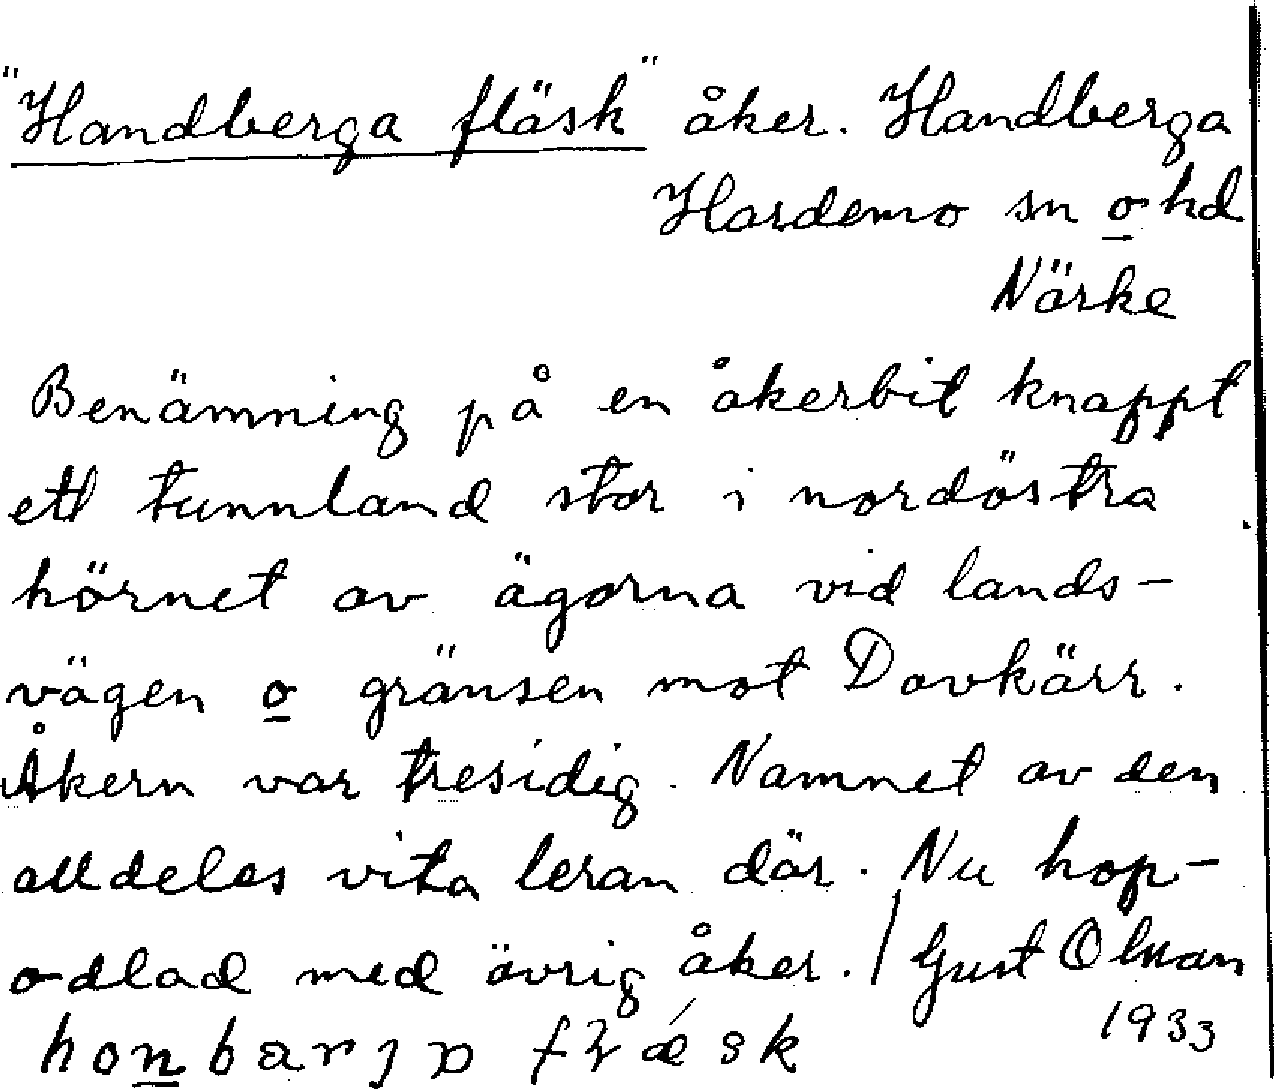 "Handberga fläsk" åker. Handberga
Hardemo sn o hd
Närke
Benämning på en åkerbit knappt
ett tunnland stor i nordöstra
hörnet av ägorna vid lands-
vägen o gränsen mot Dovkärr.
Åkern var tresidig. Namnet av den
alldeles vita leran där. Nu hop-
odlad med övrig åker. / Gust Olsson
1933